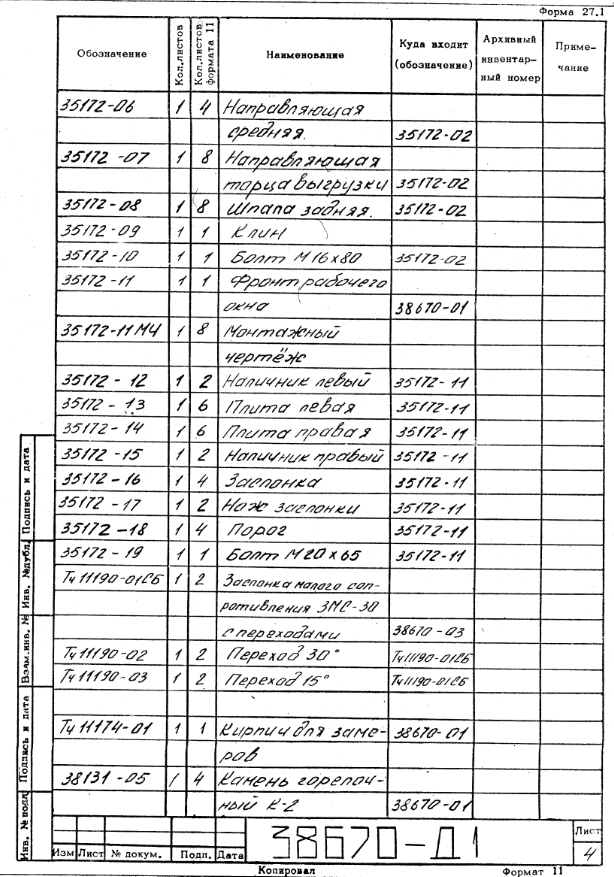 Форма 27.1
Обозначение Кол.листов Кол.листов формата 11 Наименование Куда входит (обозначение) Архивный инвентарный номер Примечание
35172-06 1 4 Направляющая
средняя. 35172-02
35172-07 1 8 Направляющая
торца выгрузки 35172-02
35172-08 1 8 Шпала задняя. 35172-02
35172-09 1 1 Клин
35172-10 1 1 Болт М16х80 35172-02
35172-11 1 1 Фронт рабочего
окна 38670-01
35172-11МЧ 1 8 Монтажный
чертёж
35172-12 1 2 Наличник левый 35172-11
35172-13 1 6 Плита левая 35172-11
35172-14 1 6 Плита правая 35172-11
35172-15 1 2 Наличник правый 35172-11
35172-16 1 4 Заслонка 35172-11
35172-17 1 2 Нож заслонки 35172-11
35172-18 1 4 Порог 35172-11
35172-19 1 1 Болт М20х65 35172-11
Тч11190-01СБ 1 2 Заслонка малого соп-
ротивления ЗМС-30
с переходами 38670-03
Тч11190-02 1 2 Переход 30° Тч11190-01СБ
Тч11190-03 1 2 Переход 15° Тч11190-01СБ
Тч11174-01 1 1 Кирпич для заме- 38670-01
ров
38131-05 1 4 Камень горелоч-
ный К-2 38670-01
Инв. № подл. Подпись и дата Взам.инв. № Инв. №дубл. Подпись и дата
Изм Лист № докум. Подп. Дата
38670-Д1
Лист
4
Копировал Формат 11